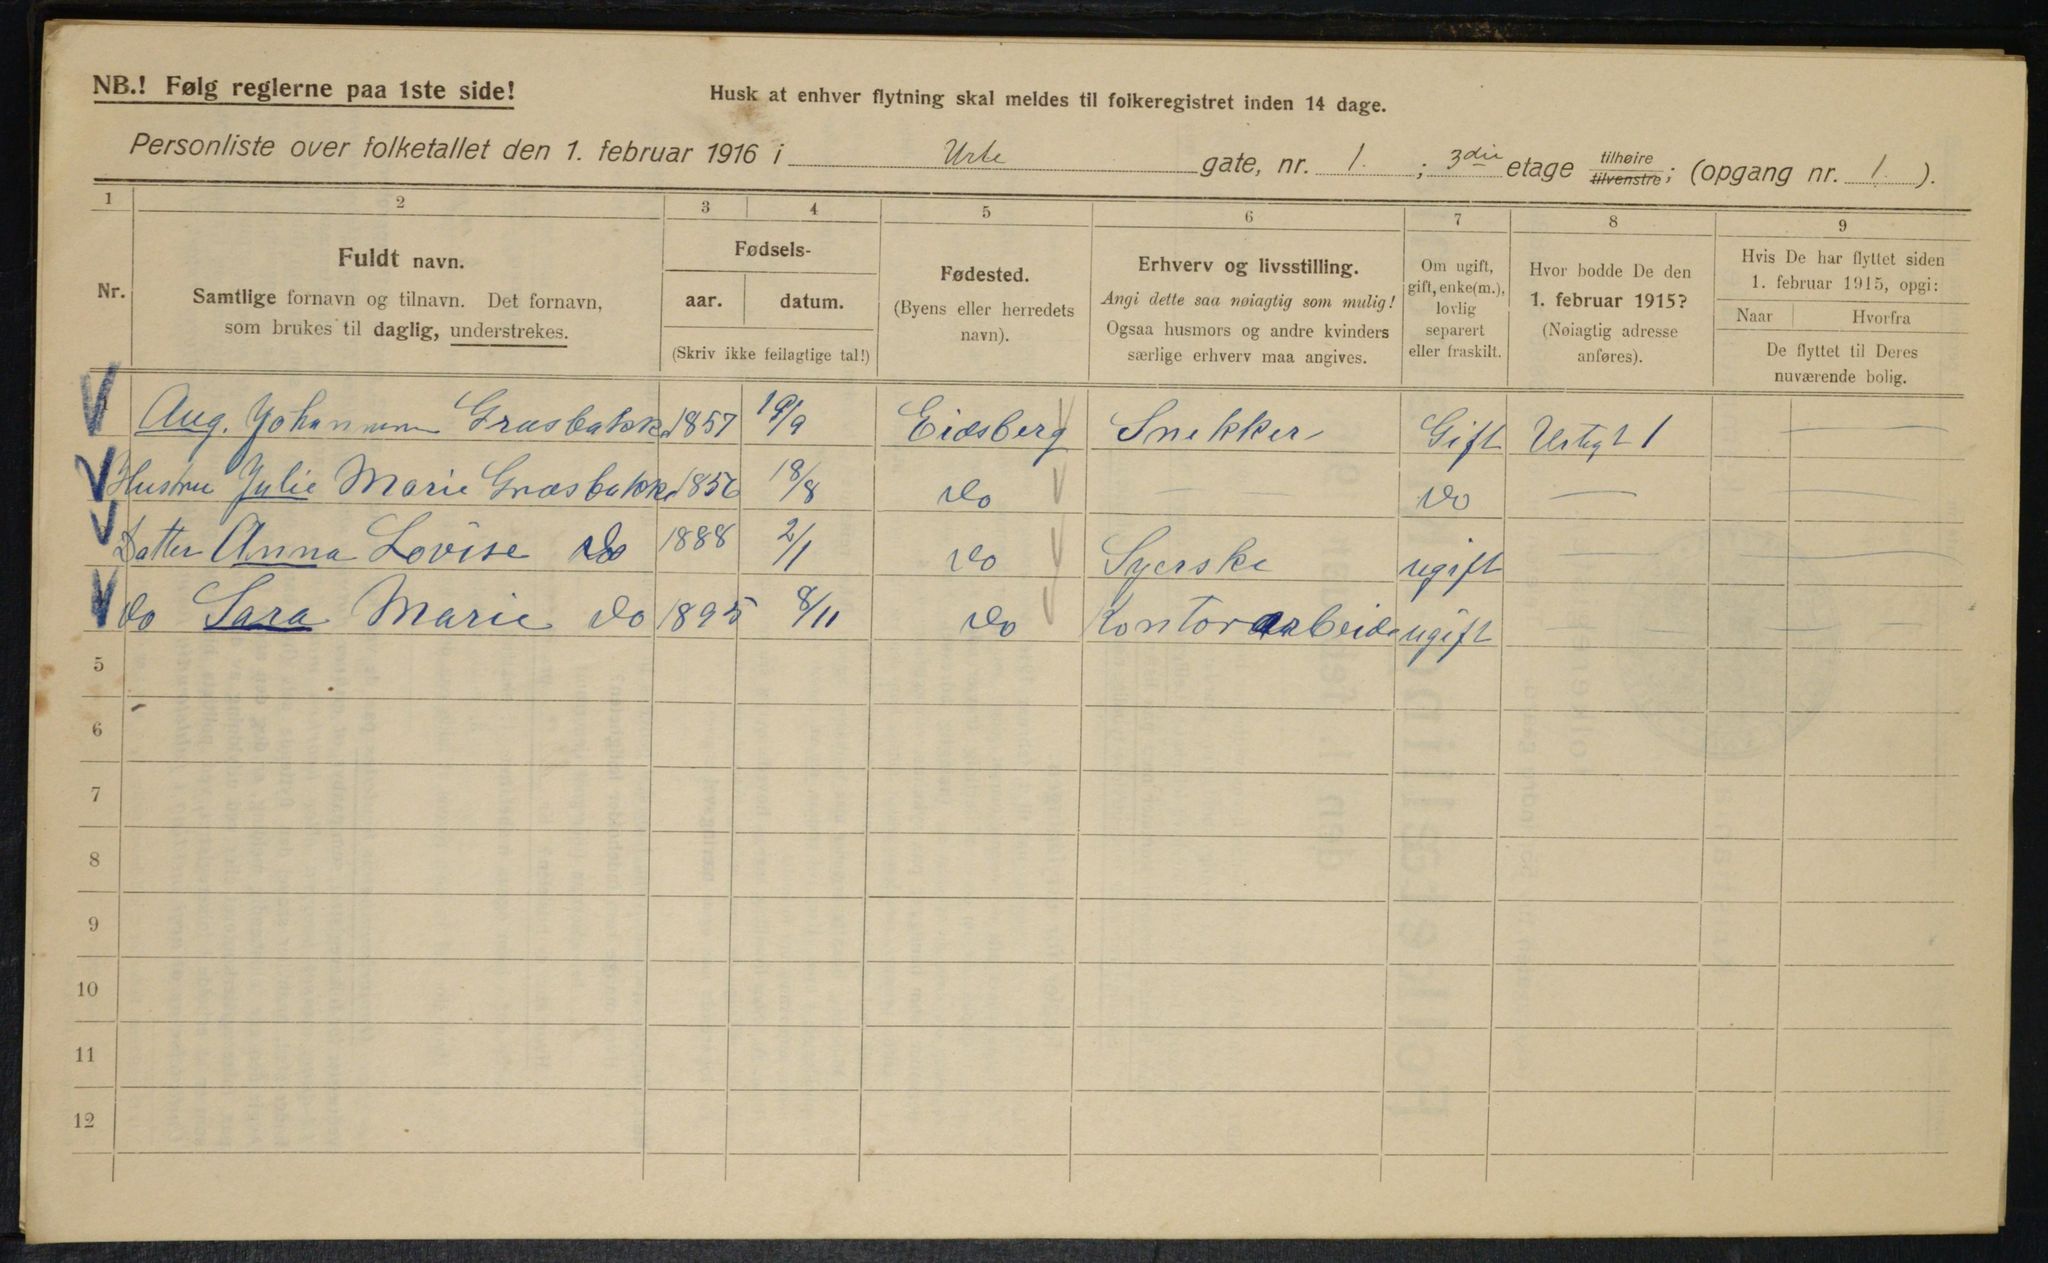 NB.! Følg reglerne paa 1ste side!
Husk at enhver flytning skal meldes til folkeregistret inden 14 dage.
Personliste over folketallet den 1. februar 1916 i Urte gate, nr. 1. ; 3die etage tilhøire tilvenstre; (opgang nr. 1. ).
1 2 3 4 5 6 7 8 9
Nr.
Fuldt navn.
Samtlige fornavn og tilnavn. Det fornavn,
som brukes til daglig, understrekes.
Fødsels-
aar. datum.
(Skriv ikke feilagtige tal!)
Fødested.
(Byens eller herredets
navn).
Erhverv og livsstilling.
Angi dette saa nøiagtig som mulig!
Ogsaa husmors og andre kvinders
særlige erhverv maa angives.
Om ugift,
gift, enke(m.),
lovlig
separert
eller fraskilt.
Hvor bodde De den
1. februar 1915?
(Nøiagtig adresse
anføres).
Hvis De har flyttet siden
1. februar 1915, opgi:
Naar Hvorfra
De flyttet til Deres
nuværende bolig.
Aug. Johannsen Græsbakke 1857 19/9 Eidsberg Snekker Gift Urtegt 1
Hustru Julie Marie Græsbakke 1856 18/8 do — — do —
Datter Anna Lovise do 1888 2/1 do Syerske ugift —
do Sara Marie do 1895 8/11 do Kontorarbeide ugift —
5
6
7
8
9
10
11
12